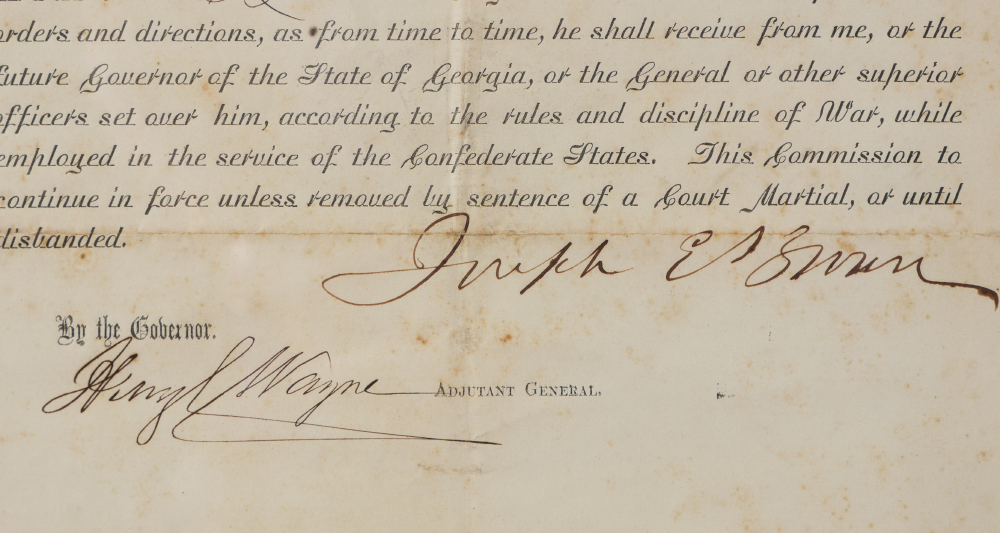 orders and directions, as from time to time, he shall receive from me, or the
future Governor of the State of Georgia, or the General or other superior
officers set over him, according to the rules and discipline of War, while
employed in the service of the Confederate States. This Commission to
continue in force unless removed by sentence of a Court Martial, or until
disbanded.
Joseph E Brown
By the Governor.
Henry C Wayne ADJUTANT GENERAL.